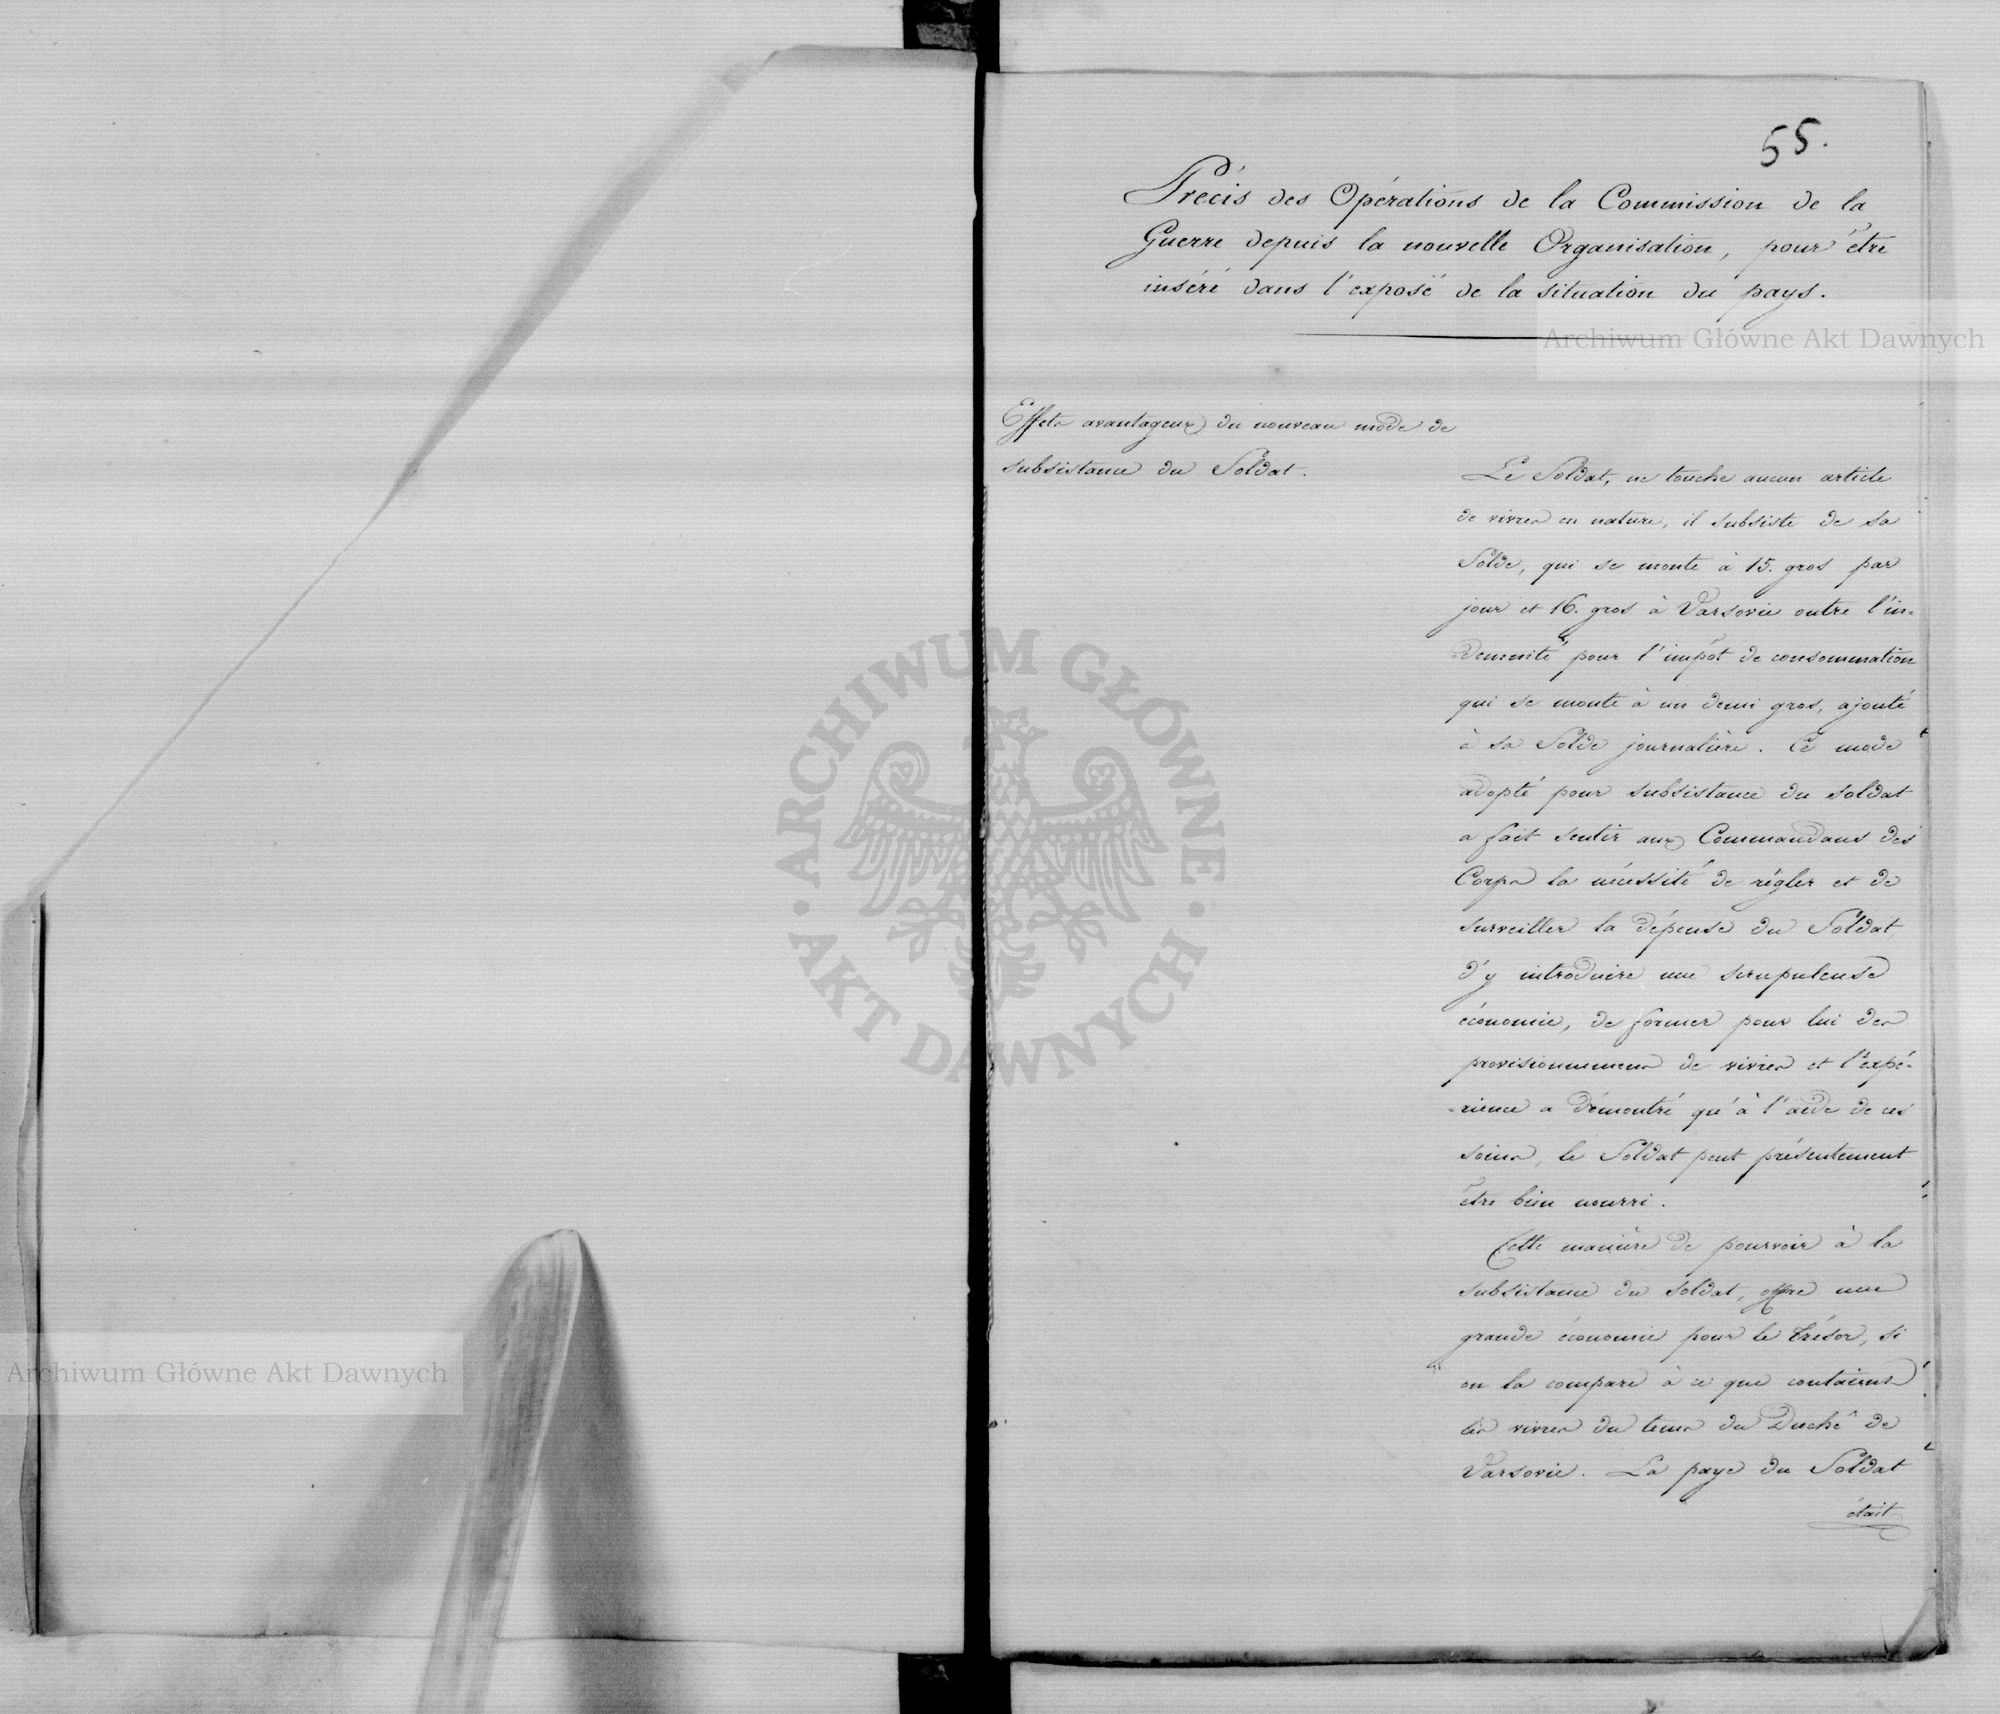 55.
Précis des Opérations de la Commission de la
Guerre depuis la nouvelle Organisation, pour être
inséré dans l'exposé de la situation du pays.
Archiwum Główne Akt Dawnych
Effets avantageux du nouveau mode de
subsistance du Soldat.
Le Soldat, ne touche aucun article
de vivres en nature, il subsiste de sa
Solde, qui se monte à 15. gros par
jour et 16. gros à Varsovie outre l'in-
demnité pour l'impôt de consommation
qui se monte à un demi gros, ajouté
à sa Solde journalière. Ce mode
adopté pour subsistance du soldat
a fait sentir aux Commandans des
Corps la nécessité de régler et de
surveiller la dépense du Soldat,
d'y introduire une scrupuleuse
économie, de former pour lui des
provisionnemens de vivres et l'expé-
-rience a démontré qu'à l'aide de ces
soins, le Soldat peut présentement
être bien nourri.
Cette manière de pourvoir à la
subsistance du soldat, offre une
grande économie pour le trésor, si
on la compare à ce que contaient
les vivres du tems du Duché de
Varsovie. La paye du Soldat
était
ARCHIWUM GŁÓWNE
AKT DAWNYCH
Archiwum Główne Akt Dawnych